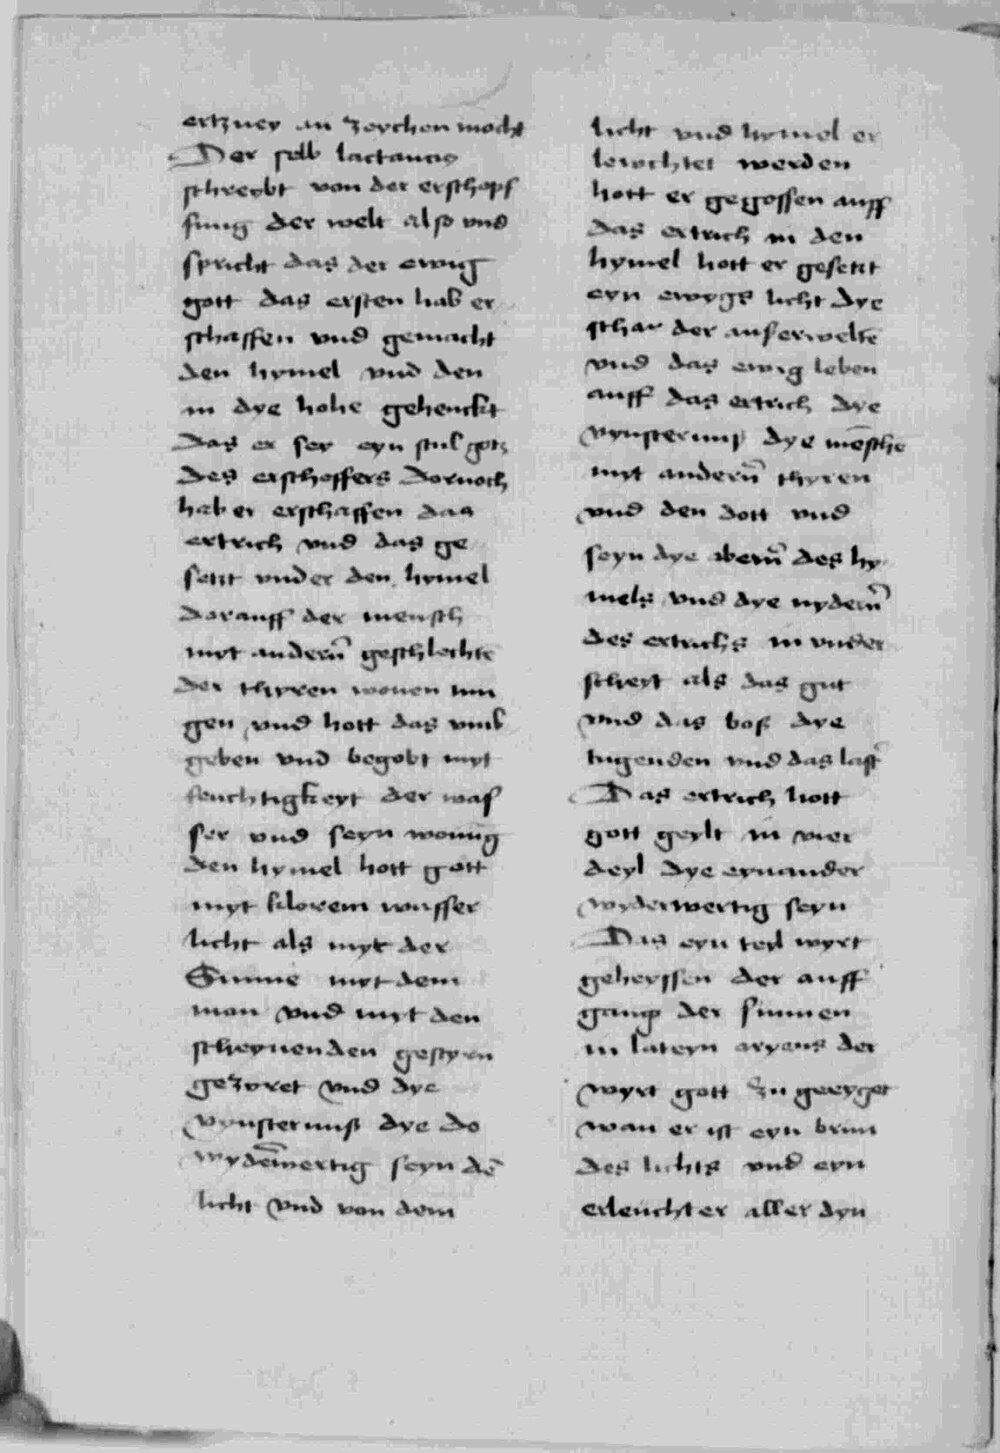 ertzney an zeychen mocht
Der selb lactancis
schreybt von der erschopf
fung der welt also vnd
spricht das der ewig
gott das ersten hab er
schaffen vnd gemacht
den hymel vnd den
in dye hohe gehenckt
Das er sey eyn stul gotz
des erschoffers Dornoch
hab er erschaffen das
ertrich vnd das ge
setzt vnder den hymel
dorauff der mensch
myt andern̄ geschlechte
der thyren wonen mu
gen vnd hott das vmb
geben vnd begobt myt
feuchtigkeyt der was
ser vnd seyn wonūg
den hymel hott gott
myt klorem wasser
licht als myt der
Sunne myt dem
mon vnd myt den
scheynenden gestyrn
gezyret vnd dye
vynsternuß dye do
wydēwertig seyn dē
licht vnd von dem
licht vnd hymel er
lewchtet werden
hott er gegossen auff
das ertrich in den
hymel hott er gesetzt
eyn ewygs licht dye
schar der auserweltē
vnd das ewig leben
auff das ertrich dye
vynsternuß dye mēsche
myt andern̄ thyren
vnd den dott vnd
seyn dye obern̄ des hy
mels vnd dye nydern̄
des ertrichs in vnder
scheyt als das gut
vnd das boß dye
tugenden vnd das last̄
Das ertrich hott
gott geylt in vier
deyl dye eynander
wyderwertig seyn
Das eyn teyl wyrt
geheyssen der auff
gang der sunnen
in lateyn oryens der
wyrt gott zu geeyget
wan er ist eyn brun
des lichts vnd eyn
erleuchter aller dyn